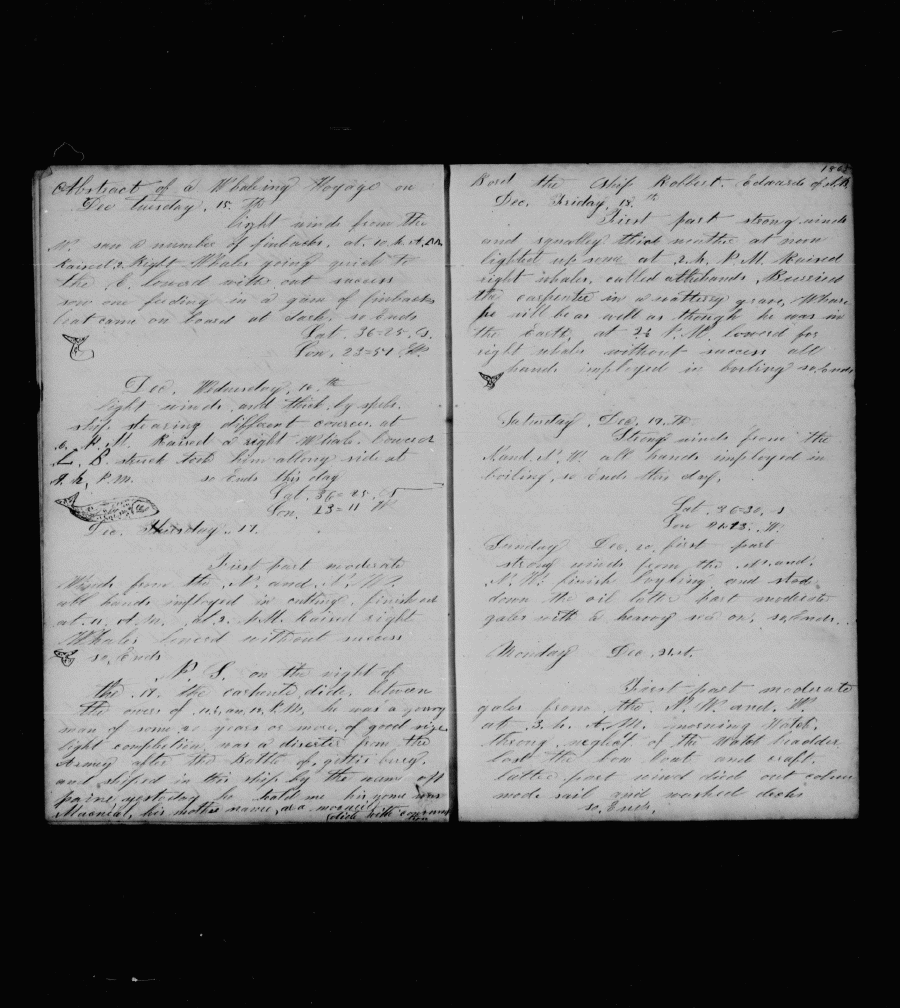 Abstract of a Whaleing Voyage on
Dec tuesday, 15, th
light winds from the
N. saw a number of finbacks, at 10. h. A.M.
Raised 2 Right Whales going quick to
the E. lowerd with out success
saw one feeding in a gam of finbacks
boat came on board at dark. so Ends
Lat. 36=25. S.
Lon. 23=57 W.
Dec, Wednesday, 16, th
light winds and thick by spels.
ship stearing different courses at
P. M. Raised a right Whale. lowered
L. B. struck took him allong side at
h, P.M. so Ends this day
Lat. 36=25. S
Lon. 23=11 W
Dec. thursday. 17.
First part moderate
Winds from the N. and N. W.
all hands imployed in cutting. finished
at. 11. A.M. at 2. P.M. Raised right
Whales lowerd without success
so, Ends
N. S. on the night of
the .17. the carpente dide, between
the owers of P.M, he was a young
man of some 20 years or more, of good size
light complction was a diserter from the
Army after the Battle of, gettis burg,
and shiped in this ship by the name off
paine, yestoday he told me his name was
Macneal, his mother name,
(dide with consum
tion
1863
Bord the Ship Robbert. Edwards of N.B.
Dec. Friday, 18. th
First part strong winds
and squalley thick weather at noon
lighted up some at .2. h. P.M. Raised
right whales, called all hands, Burried
the carpenter in a wattery grave, Whare
he will be as well as though he was in
the Earth, at P.M. lowerd for
right whales without success all
hands imployed in boiling so, Ends
Saturday, Dec, 19, th.
Strong winds from the
N. and. N. W. all hands imployed in
boiling, so Ends this day,
Lat. 36=30. S
Lon W.
Sunday Dec, 20, first part
strong winds from the .N. and.
N. W. finish boyling and stod
down the oil latter part moderate
gales with a heavey sea on, so, Ends.
Monday Dec ,21st.
First part moderate
gales from the N. W. and. W.
at .3. h. A.M. morning Watch,
throug neglect of the Watch headder
lost the bow boat and craft.
latter part wind died out calm
made sail and washed decks
so, Ends,